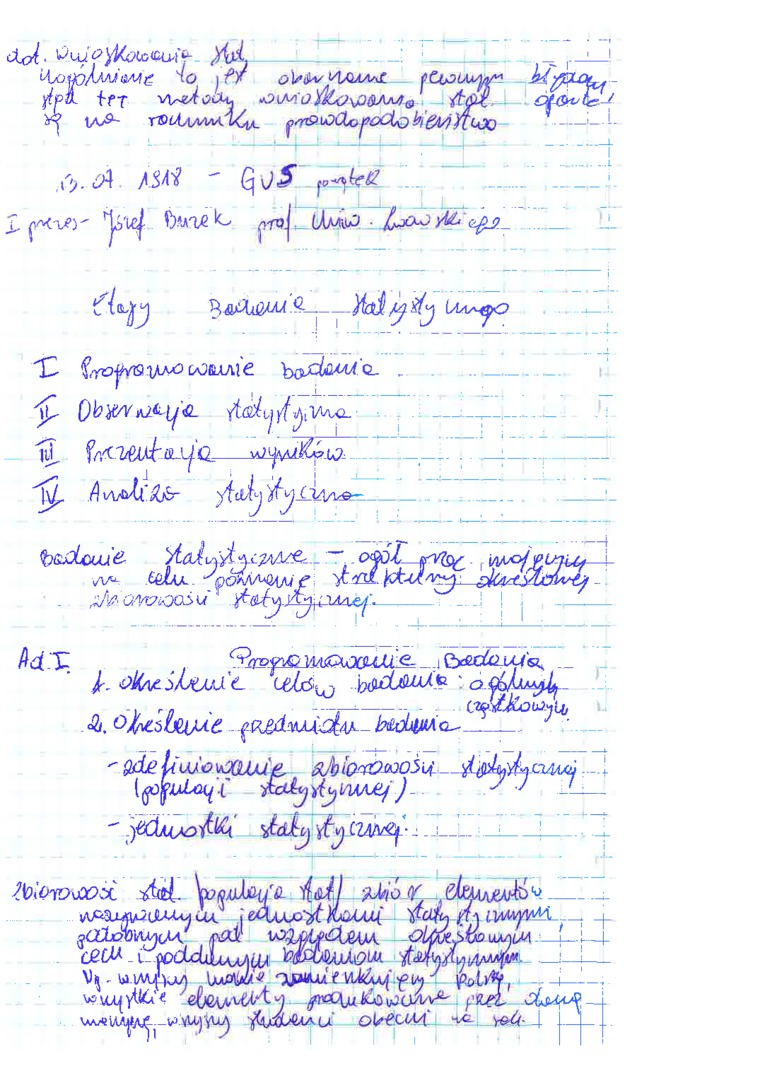 dot. wnioskowania stat.
uogólnianie to jest obarczone pewnym błędem
stąd też metody wnioskowania stat. oparte
są na rachunku prawdopodobieństwa
13.07.1918 - GUS początek
I prezes - Józef Buzek prof. Uniw. Lwowskiego
Etapy Badania statystycznego
I Programowanie badania
II Obserwacja statystyczna
III Prezentacja wyników
IV Analiza statystyczna
Badanie statystyczne - ogół prac mających
na celu poznanie struktury określonej
zbiorowości statystycznej.
Ad. I. Programowanie Badania
1. określenie celów badania: ogólnych
cząstkowych
2. Określenie przedmiotu badania
- zdefiniowanie zbiorowości statystycznej
(populacji statystycznej)
- jednostki statystycznej.
Zbiorowość stat. /populacja stat/ zbiór elementów
nazywanych jednostkami statystycznymi
podobnych pod względem określonych
cech i poddanych badaniom statystycznym
Np. wszyscy zamieszkujący Polskę,
wszystkie elementy produkowane przez daną
maszynę, wszyscy studenci obecni na sali.